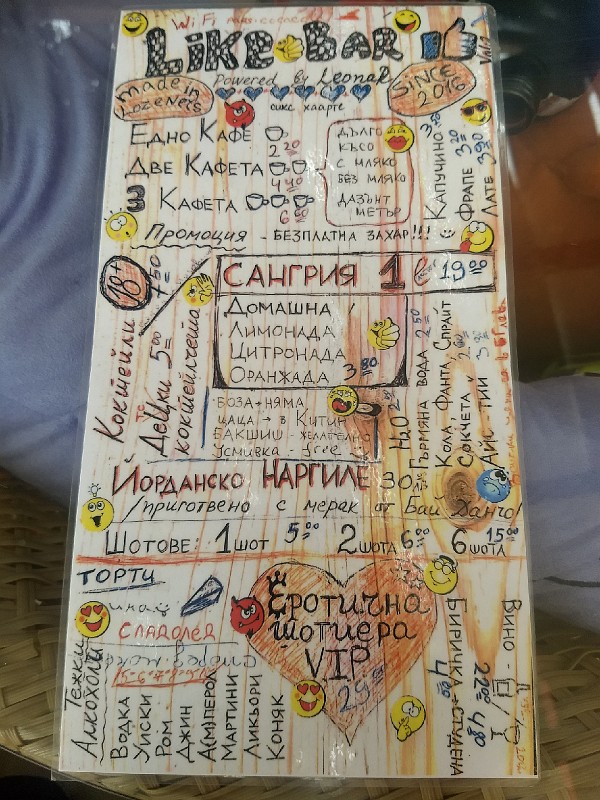 WiFi
LiKE BAR
Powered by Leonar
made in Lozenets
SINCE 2016
сикс хаарте
ЕДНО КАФЕ 2 20
ДВЕ КАФЕТА 4 40
3 КАФЕТА 6 60
ДЪЛГО
КЪСО
С МЛЯКО
БЕЗ МЛЯКО
ДАЗЪНТ
МЕТЪР
КАПУЧИНО 3 20
ФРАПЕ 3 20
ЛАТЕ 3 90
Промоция - БЕЗПЛАТНА ЗАХАР!!!
18+
Коктейли 7 50
Децки коктейлчета 5 00
САНГРИЯ 1 l 19
ДОМАШНА
ЛИМОНАДА
ЦИТРОНАДА
ОРАНЖАДА 3 80
БОЗА → НЯМА
ЦАЦА → В КИТЕН
БАКШИШ - ЖЕЛАТЕЛНО
УСМИВКА - free
H2O
ГЪРМЯНА ВОДА 2 50
КОЛА ФАНТА СПРАЙТ
СОКЧЕТА
АЙС ТИЙ
ЙОРДАНСКО НАРГИЛЕ 30
/приготвено с мерак от Бай Данчо/
ШОТОВЕ: 1 ШОТ 5 00 2 ШОТА 6 00 6 ШОТА 15 00
ТОРТИ
СЛАДОЛЕД
Еротична
шотиера
VIP
29
Тежки
Алкохоли
ВОДКА
УИСКИ
РОМ
ДЖИН
А(М)ПЕРОЛ
МАРТИНИ
ЛИКЬОРИ
КОНЯК
БИРИЧКА → СТУДЕНА 4 00
ВИНО - 22 00 / 4 80